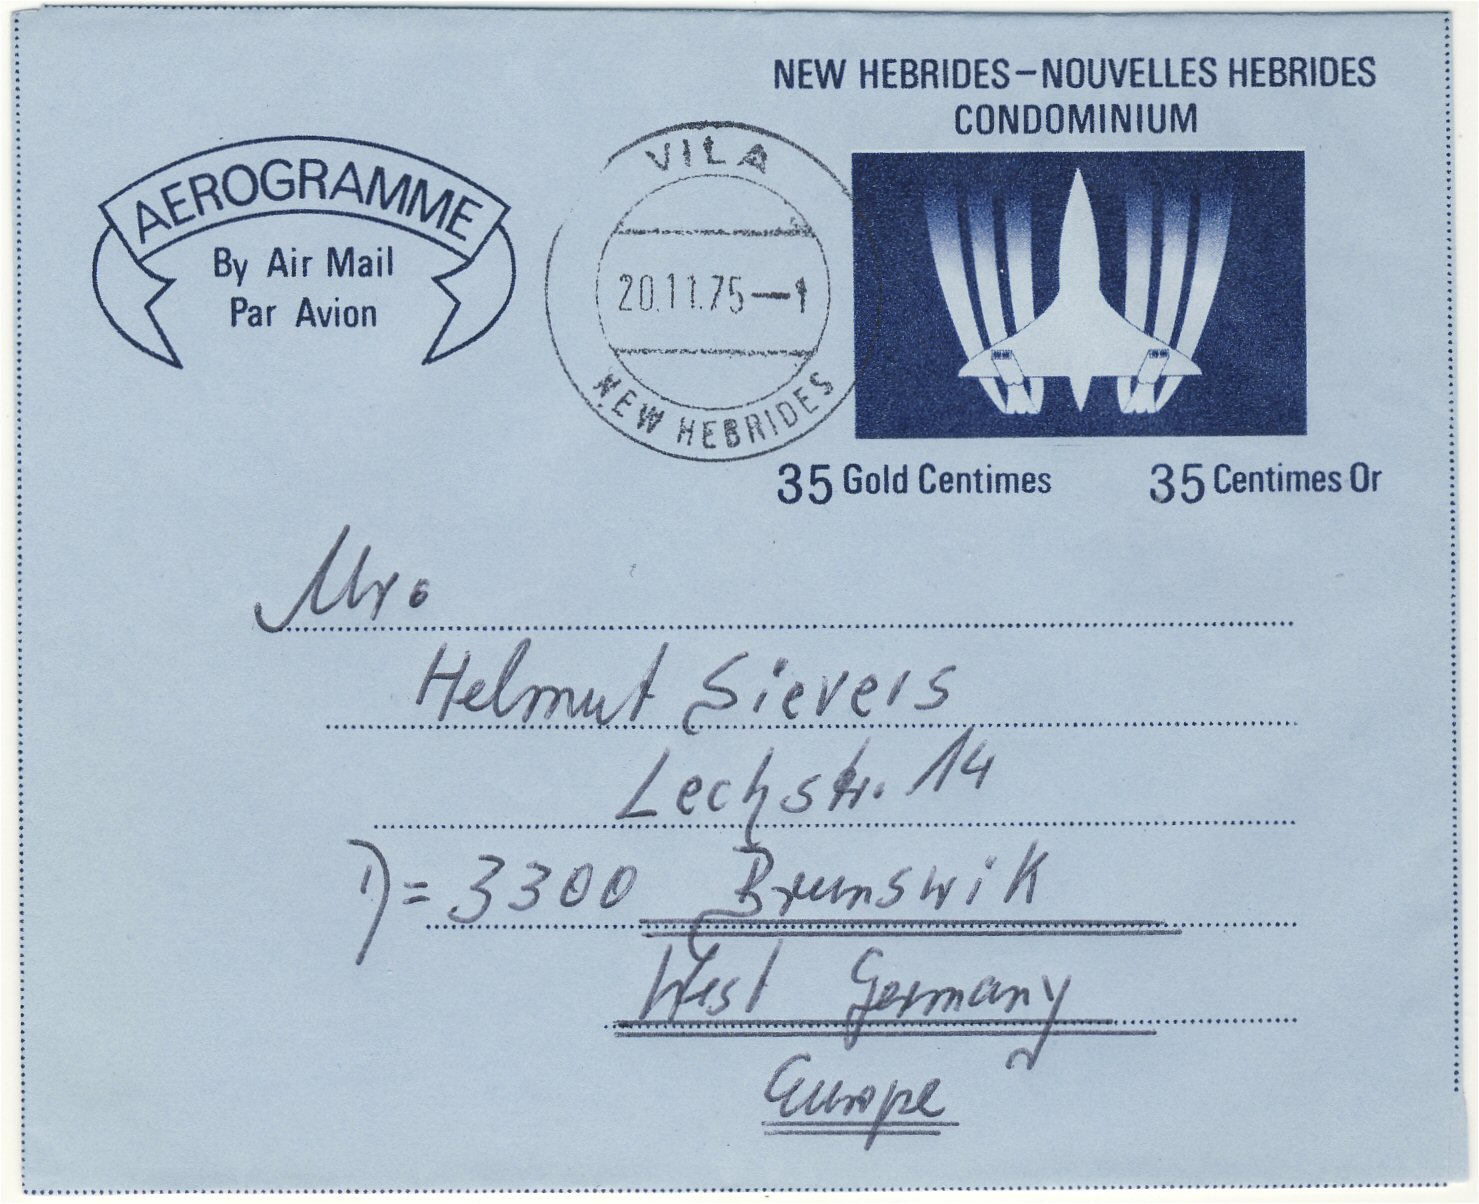 NEW HEBRIDES-NOUVELLES HEBRIDES
CONDOMINIUM
AEROGRAMME
By Air Mail
Par Avion
VILA
20.11.75-1
NEW HEBRIDES
35 Gold Centimes
35 Centimes Or
Mr.
Helmut Sievers
Lechstr. 14
D=3300 Brunswik
West Germany
Europe